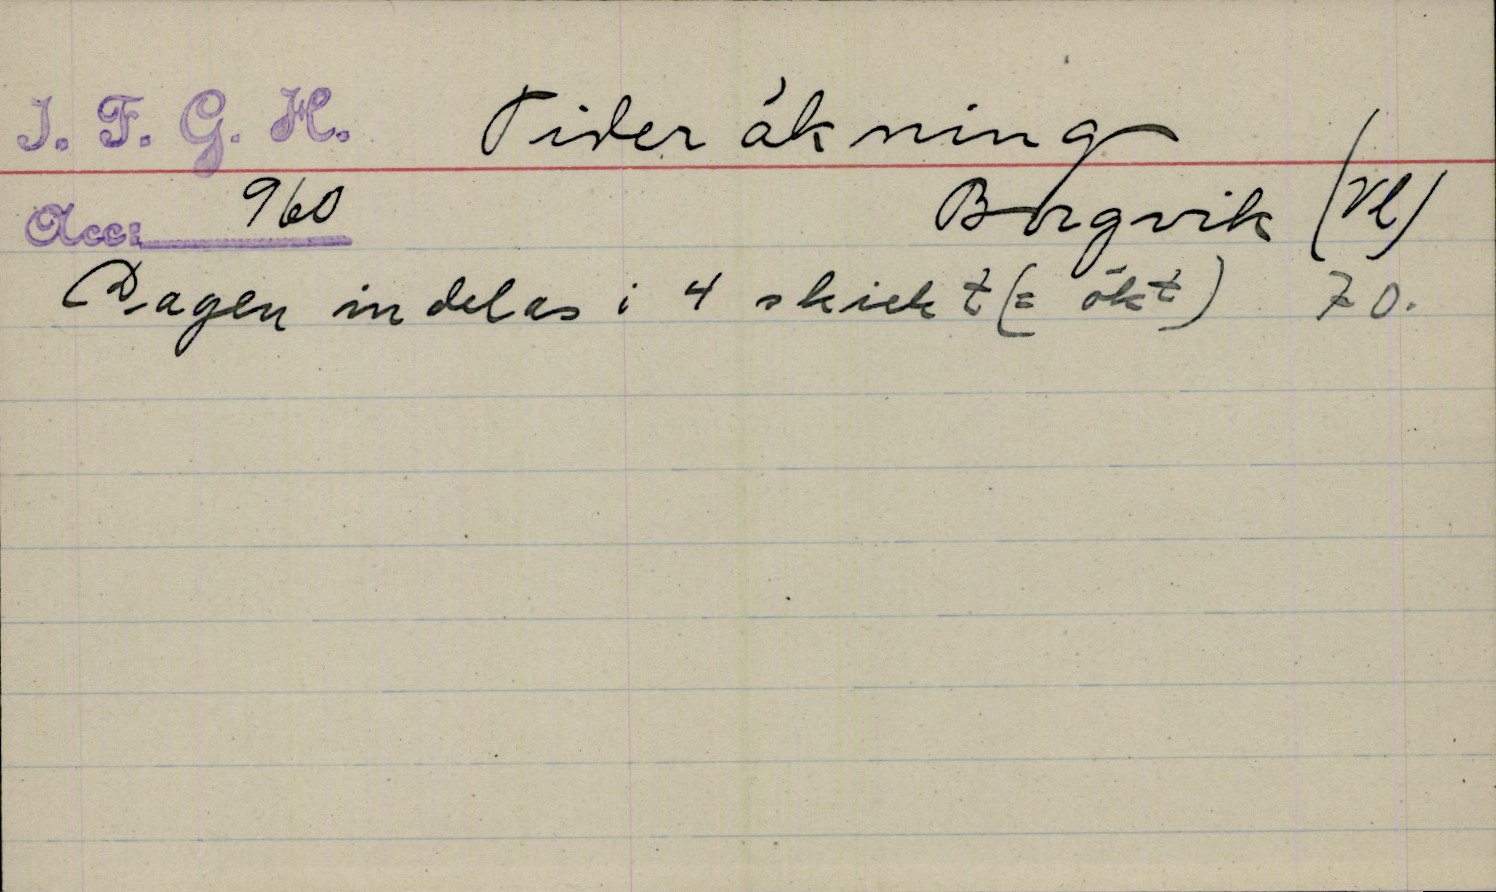 I. F. G. H. Tideräkning
Acc: 960 Borgvik (Vl)
Dagen indelas i 4 skickt (= ökt) 70.